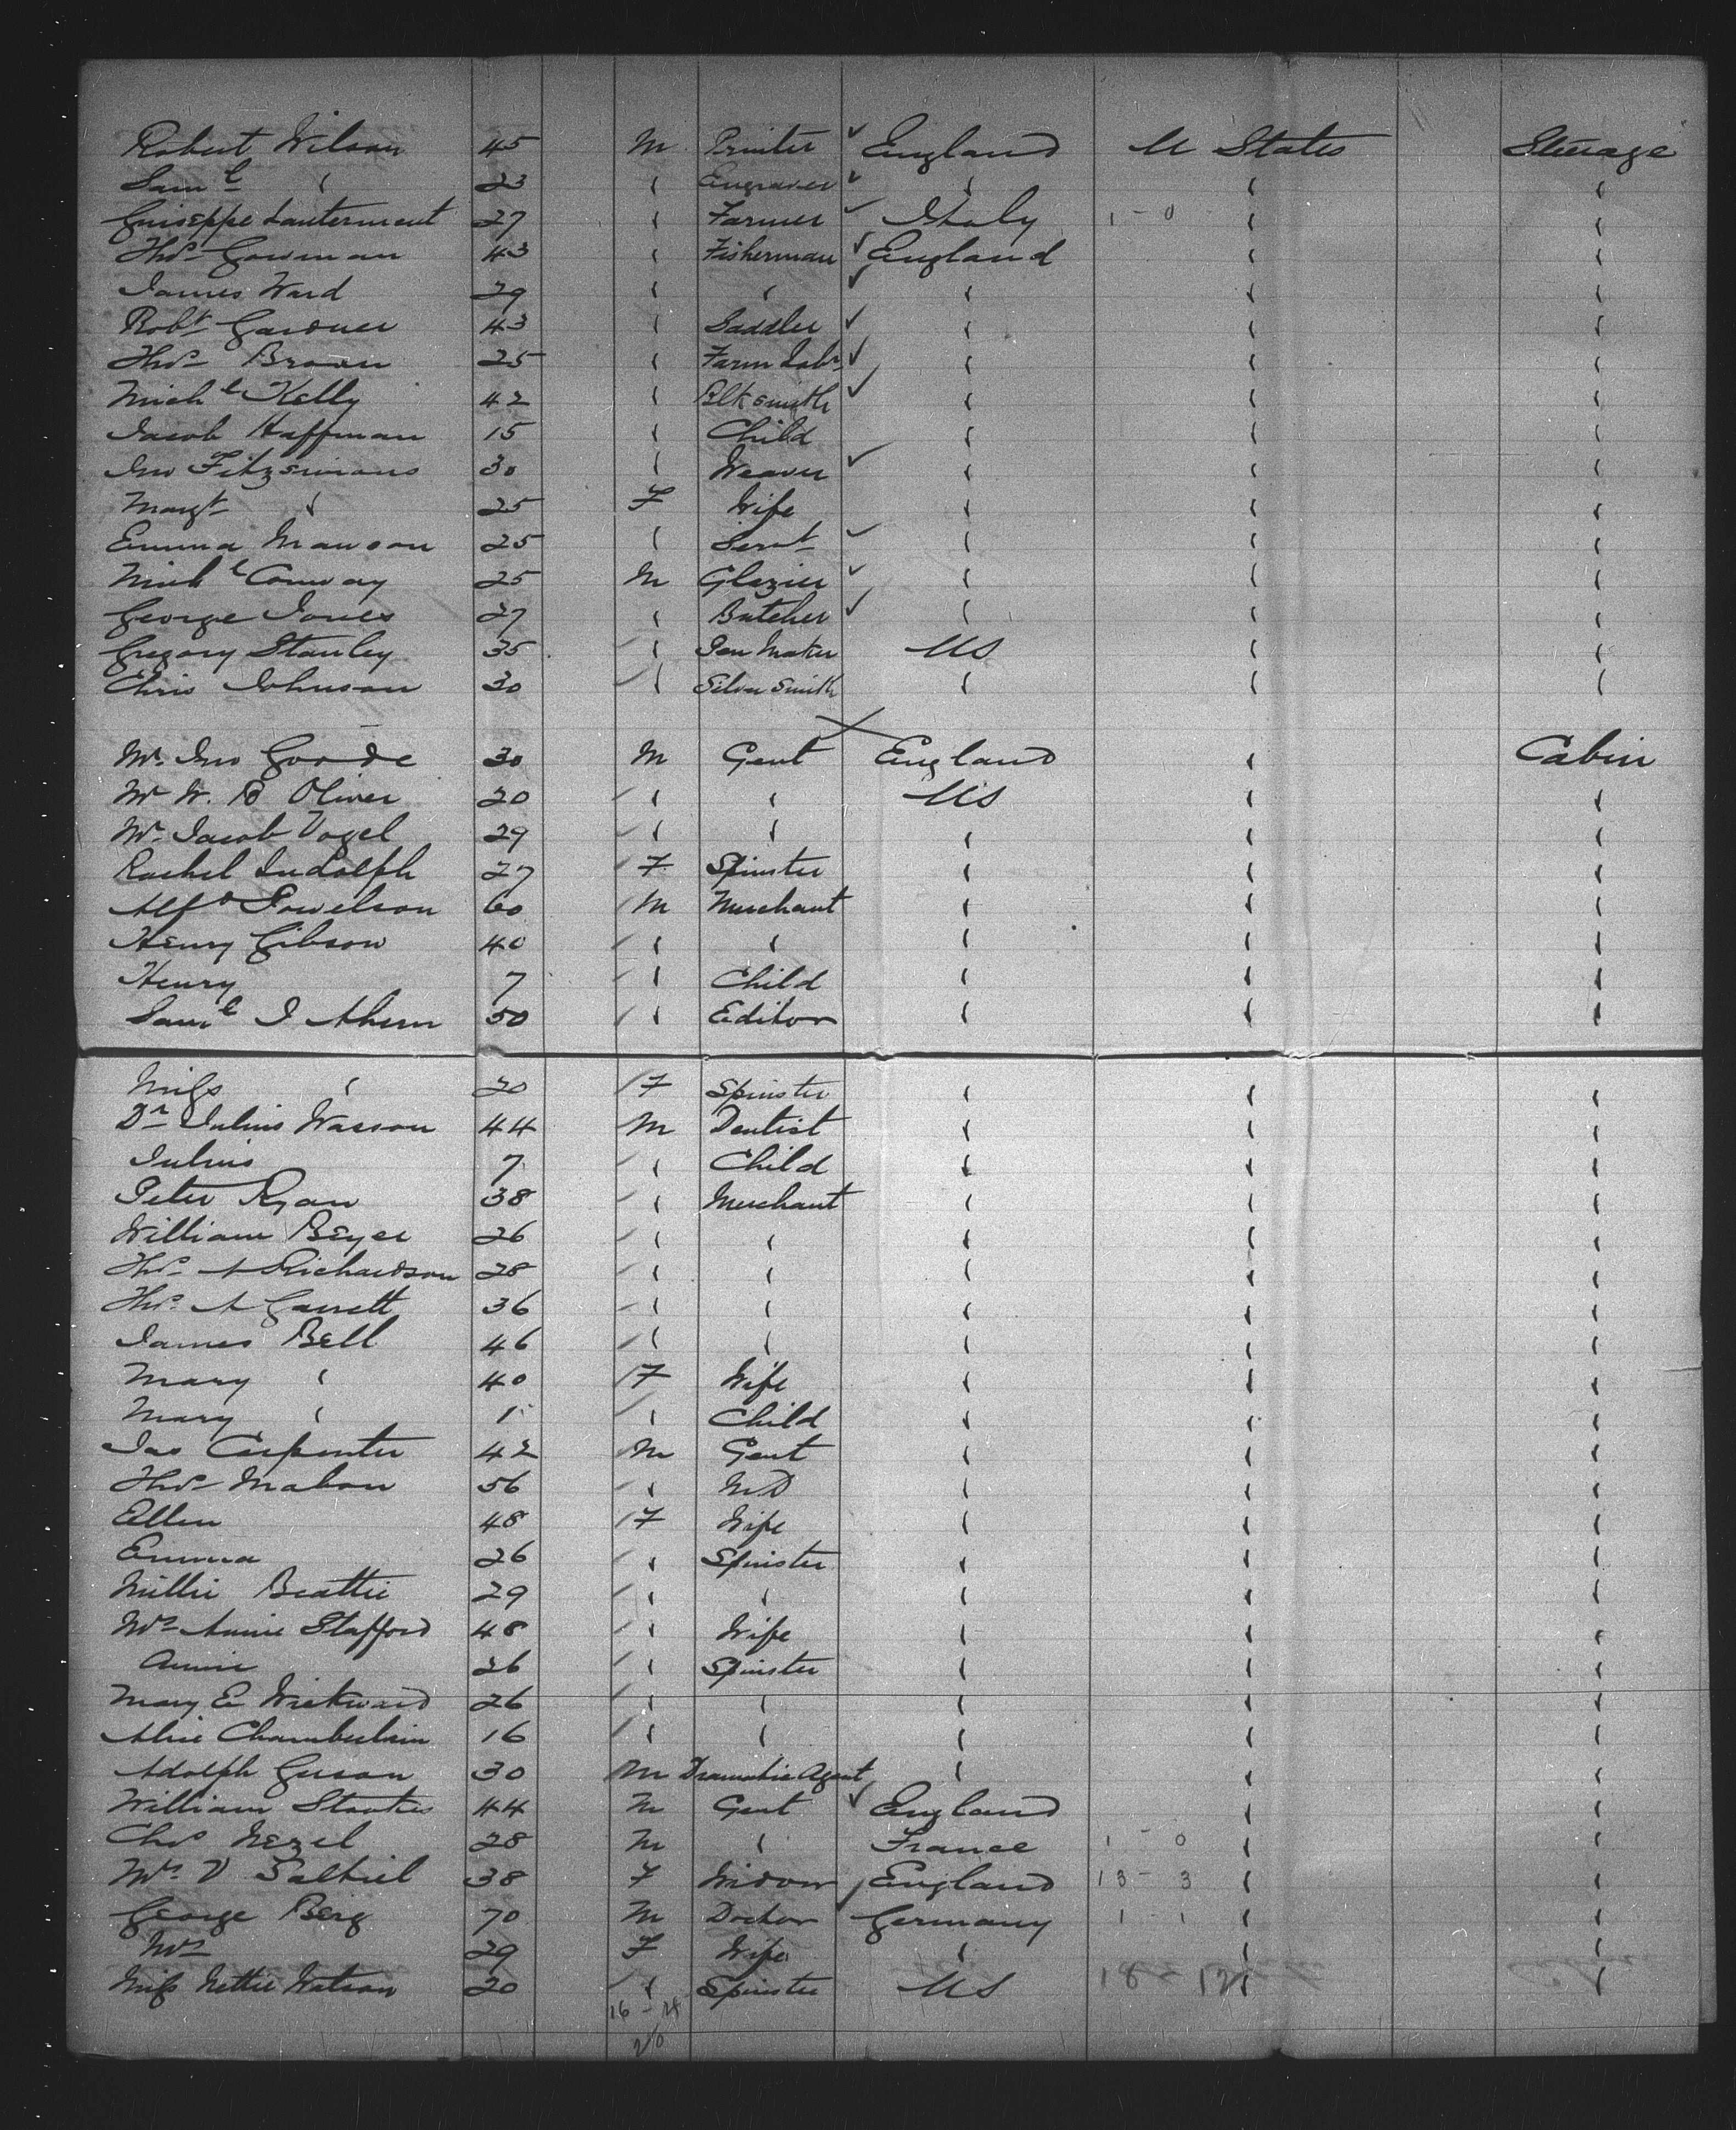 Robert Wilson 45 M Printer ✓ England U States Steerage
Saml " 23 " Engraver ✓ " " "
Guiseppe Lanterment 27 " Farmer ✓ Italy 1 - 0 " "
Thos Gowman 43 " Fisherman ✓ England " "
James Ward 29 " " ✓ " " "
Robt Gardner 43 " Saddler ✓ " " "
Thos Brown 25 " Farm Labr ✓ " " "
Michl Kelly 42 " Blksmith ✓ " " "
Jacob Haffman 15 " Child " " "
Jno Fitzsimons 30 " Weaver ✓ " " "
Margt " 25 F Wife " " "
Emma Manson 25 " Servt ✓ " " "
Michl Conway 25 M Glazier ✓ " " "
George Jones 27 " Butcher ✓ " " "
Gregory Stanley 35 " Pen Maker US " "
Chris Johnson 30 " Silver Smith " " "
Mr. Jno Goode 30 M Gent England " Cabin
Mr W. B Oliver 20 " " US " "
Mr. Jacob Vogel 29 " " " " "
Rachel Ludolph 27 F Spinster " " "
Alfd Powelson 60 M Merchant " " "
Henry Gibson 40 " " " " "
Henry 7 " Child " " "
Saml J Ahern 50 " Editor " " "
Miss " 20 F Spinster " " "
Dr Julius Wasson 44 M Dentist " " "
Julius 7 " Child " " "
Peter Ryan 38 " Merchant " " "
William Beyer 26 " " " " "
Thos A Richardson 28 " " " " "
Thos. A Garrett 36 " " " " "
James Bell 46 " " " " "
Mary " 40 F Wife " " "
Mary " 1 " Child " " "
Jas Carpenter 42 M Gent " " "
Thos Mahon 56 " MD " " "
Ellen 48 F Wife " " "
Emma 26 " Spinster " " "
Millie Beattie 29 " " " " "
Mrs Annie Stafford 48 " Wife " " "
Annie 26 " Spinster " " "
Mary E Wickward 26 " " " " "
Alice Chamberlain 16 " " " " "
Adolph Guson 30 M Dramatic Agent " " "
William Stoakes 44 M Gent ✓ England " "
Chas Nezel 28 M " France 1 - 0 " "
Mrs. V Salkiel 38 F Widow England 13 - 3 " "
George Berg 70 M Doctor Germany 1 - 1 " "
Mrs 29 F Wife " " "
Miss Nettie Watson 20 " Spinster US 18 - 12 " "
16 - 4
20